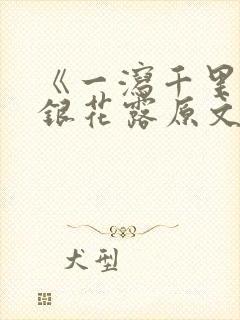 《一瀉千里
銀花露原文
犬型